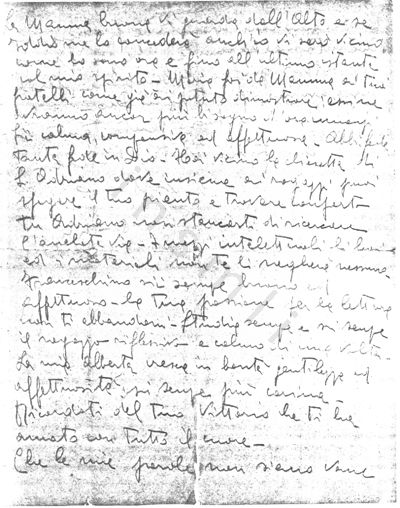 la Mamma buona vi guarda dall'Alto e se
Iddio me lo concederà anch'io vi sarò vicino
come lo sono ora e fino all'ultimo istante
col mio spirito - Maria fai da Mamma ai tuoi
fratelli come già hai saputo dimostrare, essi ne
avranno ancor più bisogno d'ora innanzi
Sii calma, comprensiva ed affettuosa - Abbi fede
tanta fede in Dio - Hai vicino la chiesetta di
S. Adriano dove insieme ai ragazzi puoi
sfogare il tuo pianto e trovare conforto
tu Adriano non stancarti di ricercare
l'anelata via - I mezzi intellettuali li hai
ed i materiali non te li negherà nessuno
Franceschino sii sempre buono ed
affettuoso - la tua passione per la lettura
non ti abbandoni - Studia sempre e sii sempre
il ragazzo riflessivo e calmo di una volta -
La mia Alberta cresca in bontà gentilezza ed
affettuosità, sii sempre più carina -
Ricordati del tuo Vittorio che ti ha
amato con tutto il cuore -
Che le mie parole non siano vane